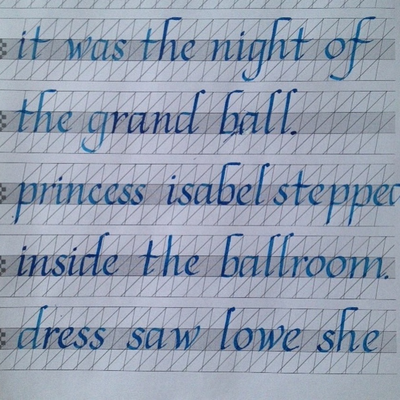 it was the night of
the grand ball.
princess isabel stepped
inside the ballroom.
dress saw lowe she